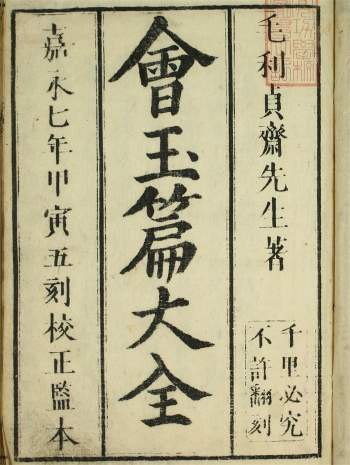 毛利貞齋先生著
千里必究
不許翻刻
會玉篇大全
嘉永七年甲寅五刻校正監本